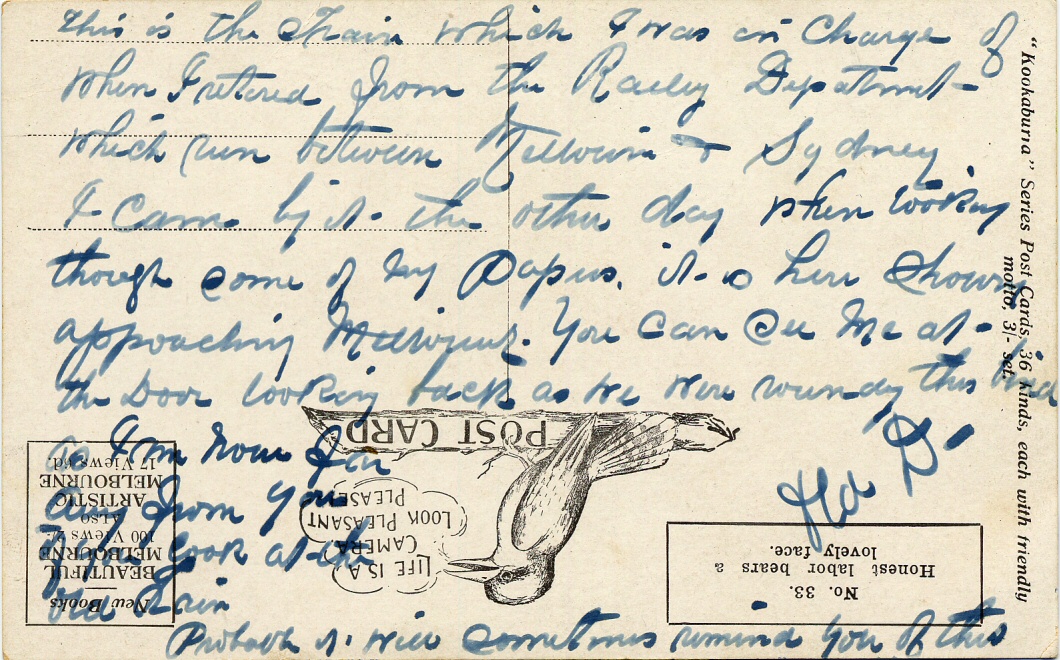 This is the train which I was in Charge of
when I retired from the Railey Depatment-
which run between Melbourn & Sydney
I Came by it the other day when looking
though some of my Papers. it is here shown
appoaching Melbourne. You Can see Me at-
the Door looking back as we were roundg this bind
as I'm now far
away from you
look at the
old train
Probabl it will sometimes remind you of this
"Kookaburra" Series Post Cards, 36 kinds, each with friendly
motto, 3/- set.
POST CARD
LIFE IS A
CAMERA
LOOK PLEASANT
PLEASE
No. 33.
Honest labor bears a
lovely face.
New Books
BEAUTIFUL
MELBOURNE
100 Views 2/-
ALSO
ARTISTIC
MELBOURNE
17 Views 6d.